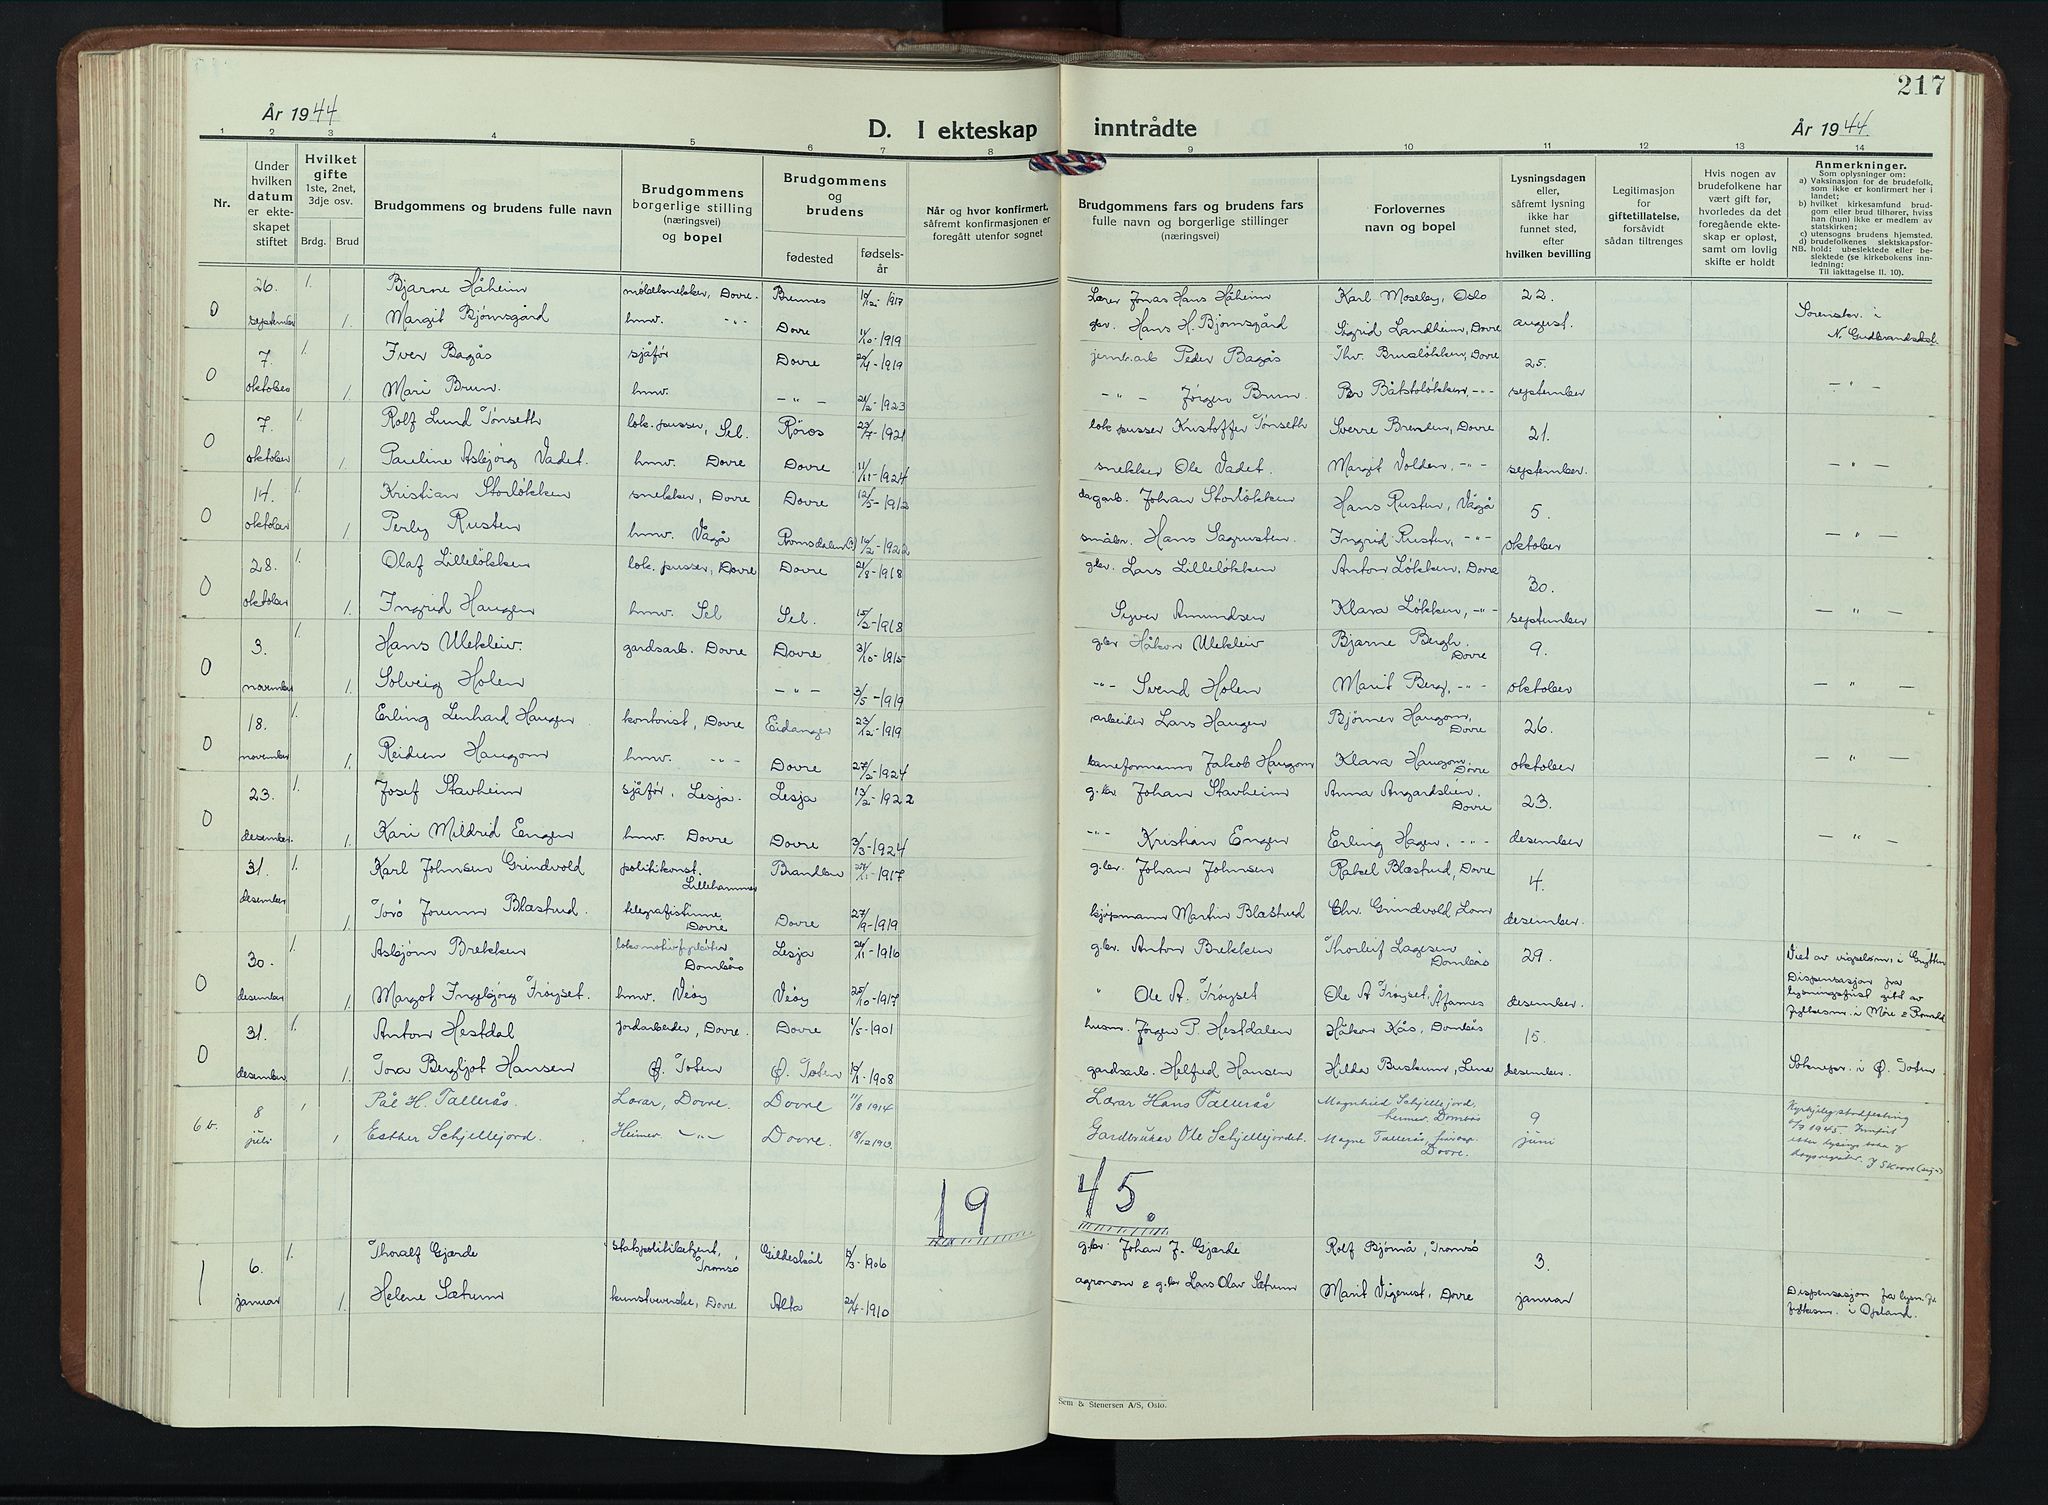 217
År 1944
D. I ekteskap inntrådte
År 1944.
1 2 3 4 5 6 7 8 9 10 11 12 13 14
Nr.
Under hvilken datum er ekteskapet stiftet
Hvilket gifte
1ste, 2net, 3dje osv.
Brdg. Brud
Brudgommens og brudens fulle navn
Brudgommens borgerlige stilling (næringsvei) og bopel
Brudgommens og brudens
fødested
fødselsår
Når og hvor konfirmert, såfremt konfirmasjonen er foregått utenfor sognet
Brudgommens fars og brudens fars fulle navn og borgerlige stillinger (næringsvei)
Forlovernes navn og bopel
Lysningsdagen eller, såfremt lysning ikke har funnet sted, efter hvilken bevilling
Legitimasjon for giftetillatelse, forsåvidt sådan tiltrenges
Hvis nogen av brudefolkene har vært gift før, hvorledes da det foregående ekteskap er opløst, samt om lovlig skifte er holdt
Anmerkninger.
Som oplysninger om:
a) Vaksinasjon for de brudefolk, som ikke er konfirmert her i landet;
b) hvilket kirkesamfund brudgom eller brud tilhører, hviss han (hun) ikke er medlem av statskirken;
c) utensogns brudens hjemsted.
d) brudefolkenes slektskapsforhold: ubeslektede eller beslektede (se kirkebokens innledning: Til iakttagelse II. 10).
NB.
0 26. 1. Bjarne Håheim møbelsnekker, Dovre. Bremnes 1917 Lærer Jonas Hans Håheim Karl Moseby, Oslo 22.
september 1. Margit Bjørnsgård hmv. -"- Dovre 11/10-1919 gbr. Hans H. Bjørnsgård Sigrid Landheim, Dovre august. Sorenskr. i N. Gudbrandsdal
0 7. 1. Iver Bagås sjåfør Dovre 20/4-1919 jernb.arb Peder Bagås Thv. Brusløkken, Dovre 25.
oktober 1. Mari Brun. hmv. - " - 21/2-1923 - " - Jørgen Brun. Per Båtstoløkken, -"- september - " -
0 7. 1. Rolf Lund Tønseth lok. pusser, Sel. Røros 23/7-1921 lok pusser Kristoffer Tønseth Sverre Brenden, Dovre 21.
oktober 1. Pauline Asbjørg Vadet. hmv. Dovre Dovre 11/11-1924 snekker Ole Vadet. Margit Volden, -"- september. - " -
0 14. 1. Kristian Storløkken snekker, Dovre Dovre 12/5-1912 dagarb. Johan Storløkken Hans Rusten, Vågå 5.
oktober 1. Perly Rusten hmv. Vågå Romsdalen(?) 1922 småbr. Hans Sagrusten Ingrid Rusten, -"- oktober - " -
0 28. 1. Olaf Lilleløkken lok. pusser, Dovre Dovre 21/8-1918 gbr. Lars Lilleløkken Anton Løkken, Dovre 30.
oktober 1. Ingrid Haugen hmv. Sel Sel. 15/2-1918 Syver Amundsen Klara Løkken, -"- september - " -
0 3. 1. Hans Ulekleiv. gardsarb. Dovre Dovre 31/10-1915 gbr Håkon Ulekleiv Bjarne Bergh. Dovre 9.
november 1. Solveig Holen - " - 3/5-1919 -"- Svend Holen Marit Berg, -"- oktober - " -
0 18. 1. Erling Lenhard Haugen kontorist, Dovre Eidanger 23/12-1919 arbeider Lars Haugen Bjørner Haugom, Dovre 26.
november 1. Reidun Haugom hmv. -"- Dovre 27/2-1924 baneformann Jakob Haugom Klara Haugom, Dovre oktober - " -
0 23. 1. Josef Stavheim sjåfør, Lesja. Lesja 13/2-1922 g.br Johan Stavheim Anna Angardslien, Dovre 23.
desember. 1. Kari Mildrid Engen hmv. Dovre Dovre 3/3-1924 -"- Kristian Engen Erling Hagen, -"- desember - " -
31. 1. Karl Johnsen Grindvold politikonst. Lillehammer Brandbu 27/11-1917 g.br. Johan Johnsen Rakel Blæstrud, Dovre 4.
desember 1. Toro Jorunn Blæstrud. telegrafistinne, Dovre Dovre 27/9-1919 kjøpmann Martin Blæstrud Chr. Grindvold Lom desember.
0 30. 1. Asbjørn Brekken Dombås Lesja 1916 g.br. Anton Brekken Thorleif Lagesen Dombås 29. Viet av vigselsm. i Grytten
desember 1. Margot Ingebjørg Frøyset. hmv. Veøy Veøy 25/10-1917 " Ole A. Frøyset Ole A Frøyset, Åfarnes desember. Dispensasjon fra lysningsfrist gitt av fylkesm. i Møre & Romsdal
0 31. 1. Anton Hestdal jordarbeider, Dovre. Dovre 1/5-1901 husm. Jørgen P. Hestdalen Håkon Kås, Dombås 15.
desember. 1. Tora Bergljot Hansen Ø. Toten Ø. Toten 1908 gardsarb. Helfred Hansen Hilda Buskum, Lena desember. Sokneprr. i Ø. Toten.
6 b. 8 1 Pål H. Tallerås. Lærar, Dovre. Dovre 11/8 1914 Lærar Hans Tallerås Magnhild Schjellejord, heimev. Dombås 9
juli 1 Esther Schjellejord. Heimev. -"- Dovre. 18/12 1913. Gardbrukar Ole Schjellejordet. Magne Tallerås, Dovre. juni Kyrkjeleg stadfesting 1945. Innført etter lysingsboka og dagsregister. J Skovre (sign)
19 45.
1 6. 1. Thoralf Gjærde statspolitibetjent, Tromsø Gildeskål 1906 g.br. Johan J. Gjærde Rolf Bjørnå, Tromsø 3.
januar 1. Helene Sætrum kunstveverske, Dovre Alta 20/4-1910 agronom & g.br Lars Olav Sætrum Marit Vigerust, Dovre januar Dispensasjon fra lysn. fylkesm. i Opland.
Sem & Stenersen A/S, Oslo.